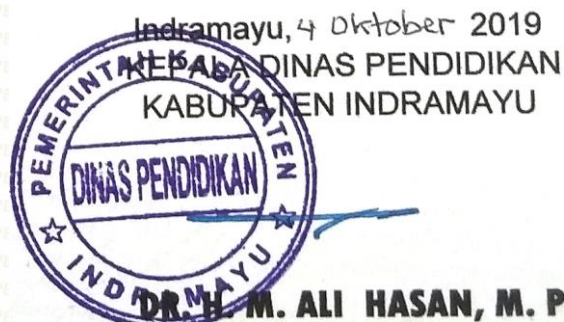 Indramayu, 4 Oktober 2019
KEPALA DINAS PENDIDIKAN
KABUPATEN INDRAMAYU
PEMERINTAH KABUPATEN
DINAS PENDIDIKAN
INDRAMAYU
DR. H. M. ALI HASAN, M. P